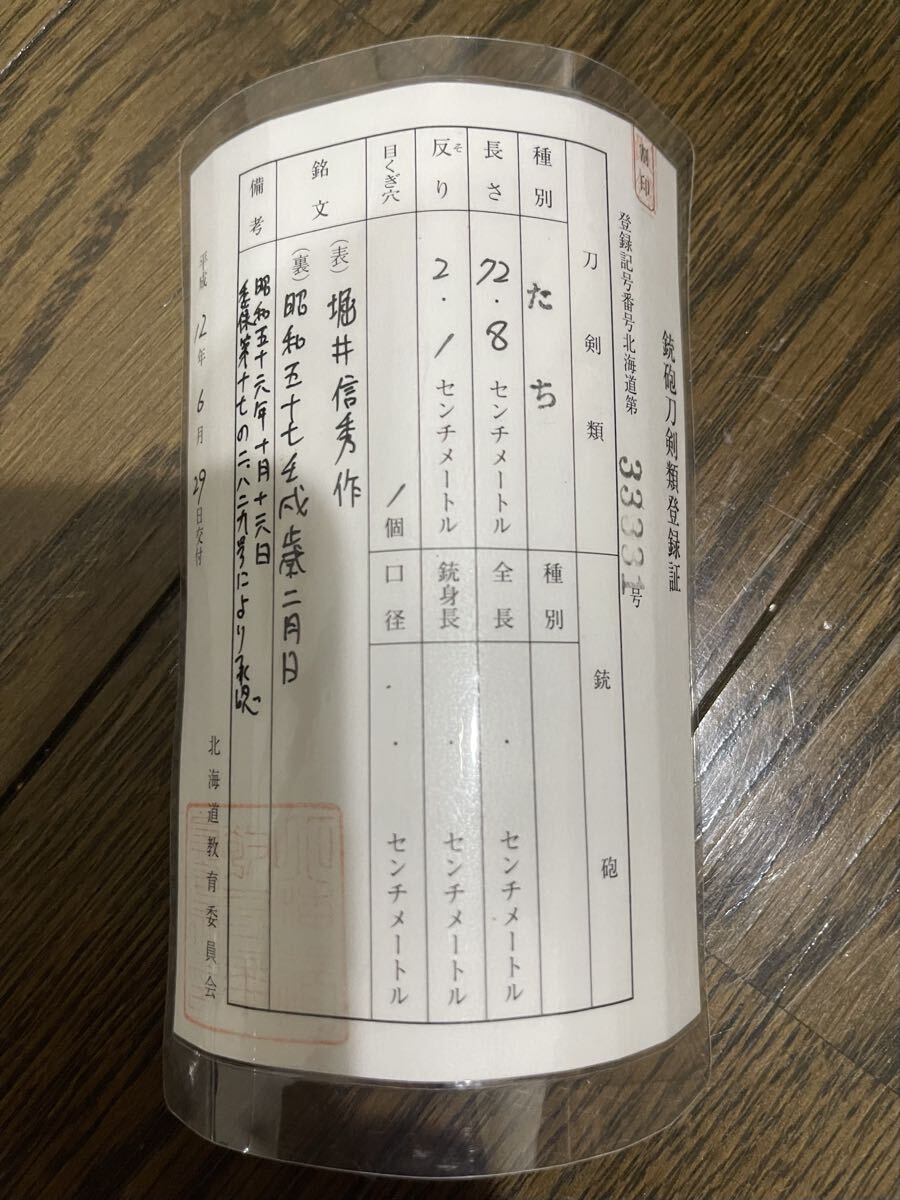 割印
銃砲刀剣類登録証
登録記号番号北海道第33331号
刀剣類
種別 たち
長さ 72.8 センチメートル
反り そ 2.1 センチメートル
目くぎ穴 1個
銘文
(表) 堀井信秀作
(裏) 昭和五十七壬戌歳二月日
備考
昭和五十六年十月十三日
委保第十七の二八二九号により承認
銃砲
種別
全長 . センチメートル
銃身長 . センチメートル
口径 . センチメートル
平成12年6月29日交付
北海道教育委員会